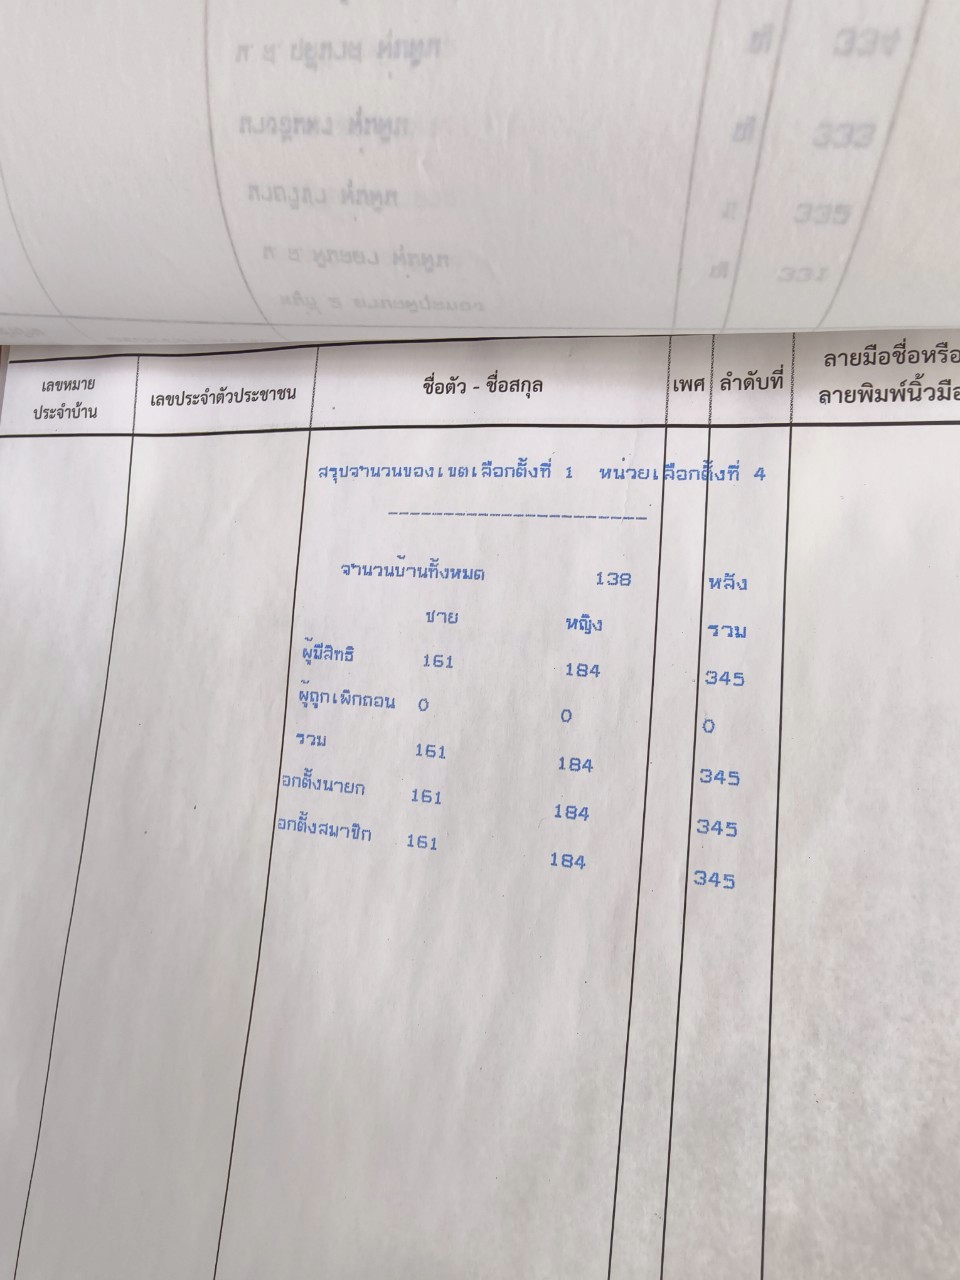 334
333
332
331
เลขหมาย
ประจำบ้าน
เลขประจำตัวประชาชน
ชื่อตัว - ชื่อสกุล
เพศ
ลำดับที่
ลายมือชื่อหรือ
ลายพิมพ์นิ้วมือ
สรุปจำนวนของเขตเลือกตั้งที่ 1 หน่วยเลือกตั้งที่ 4
------------------------
จำนวนบ้านทั้งหมด 138 หลัง
ชาย หญิง รวม
ผู้มีสิทธิ 161 184 345
ผู้ถูกเพิกถอน 0 0 0
รวม 161 184 345
อกตั้งนายก 161 184 345
อกตั้งสมาชิก 161 184 345